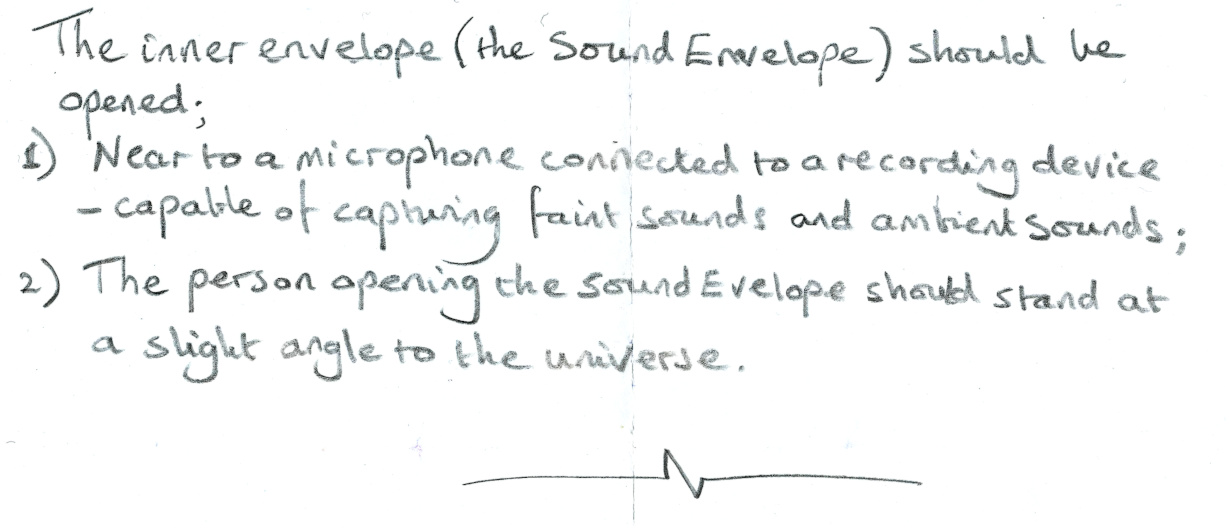 The inner envelope (the Sound Envelope) should be
opened;
1) Near to a microphone connected to a recording device
- capable of capturing faint sounds and ambient sounds;
2) The person opening the Sound Evelope should stand at
a slight angle to the universe.